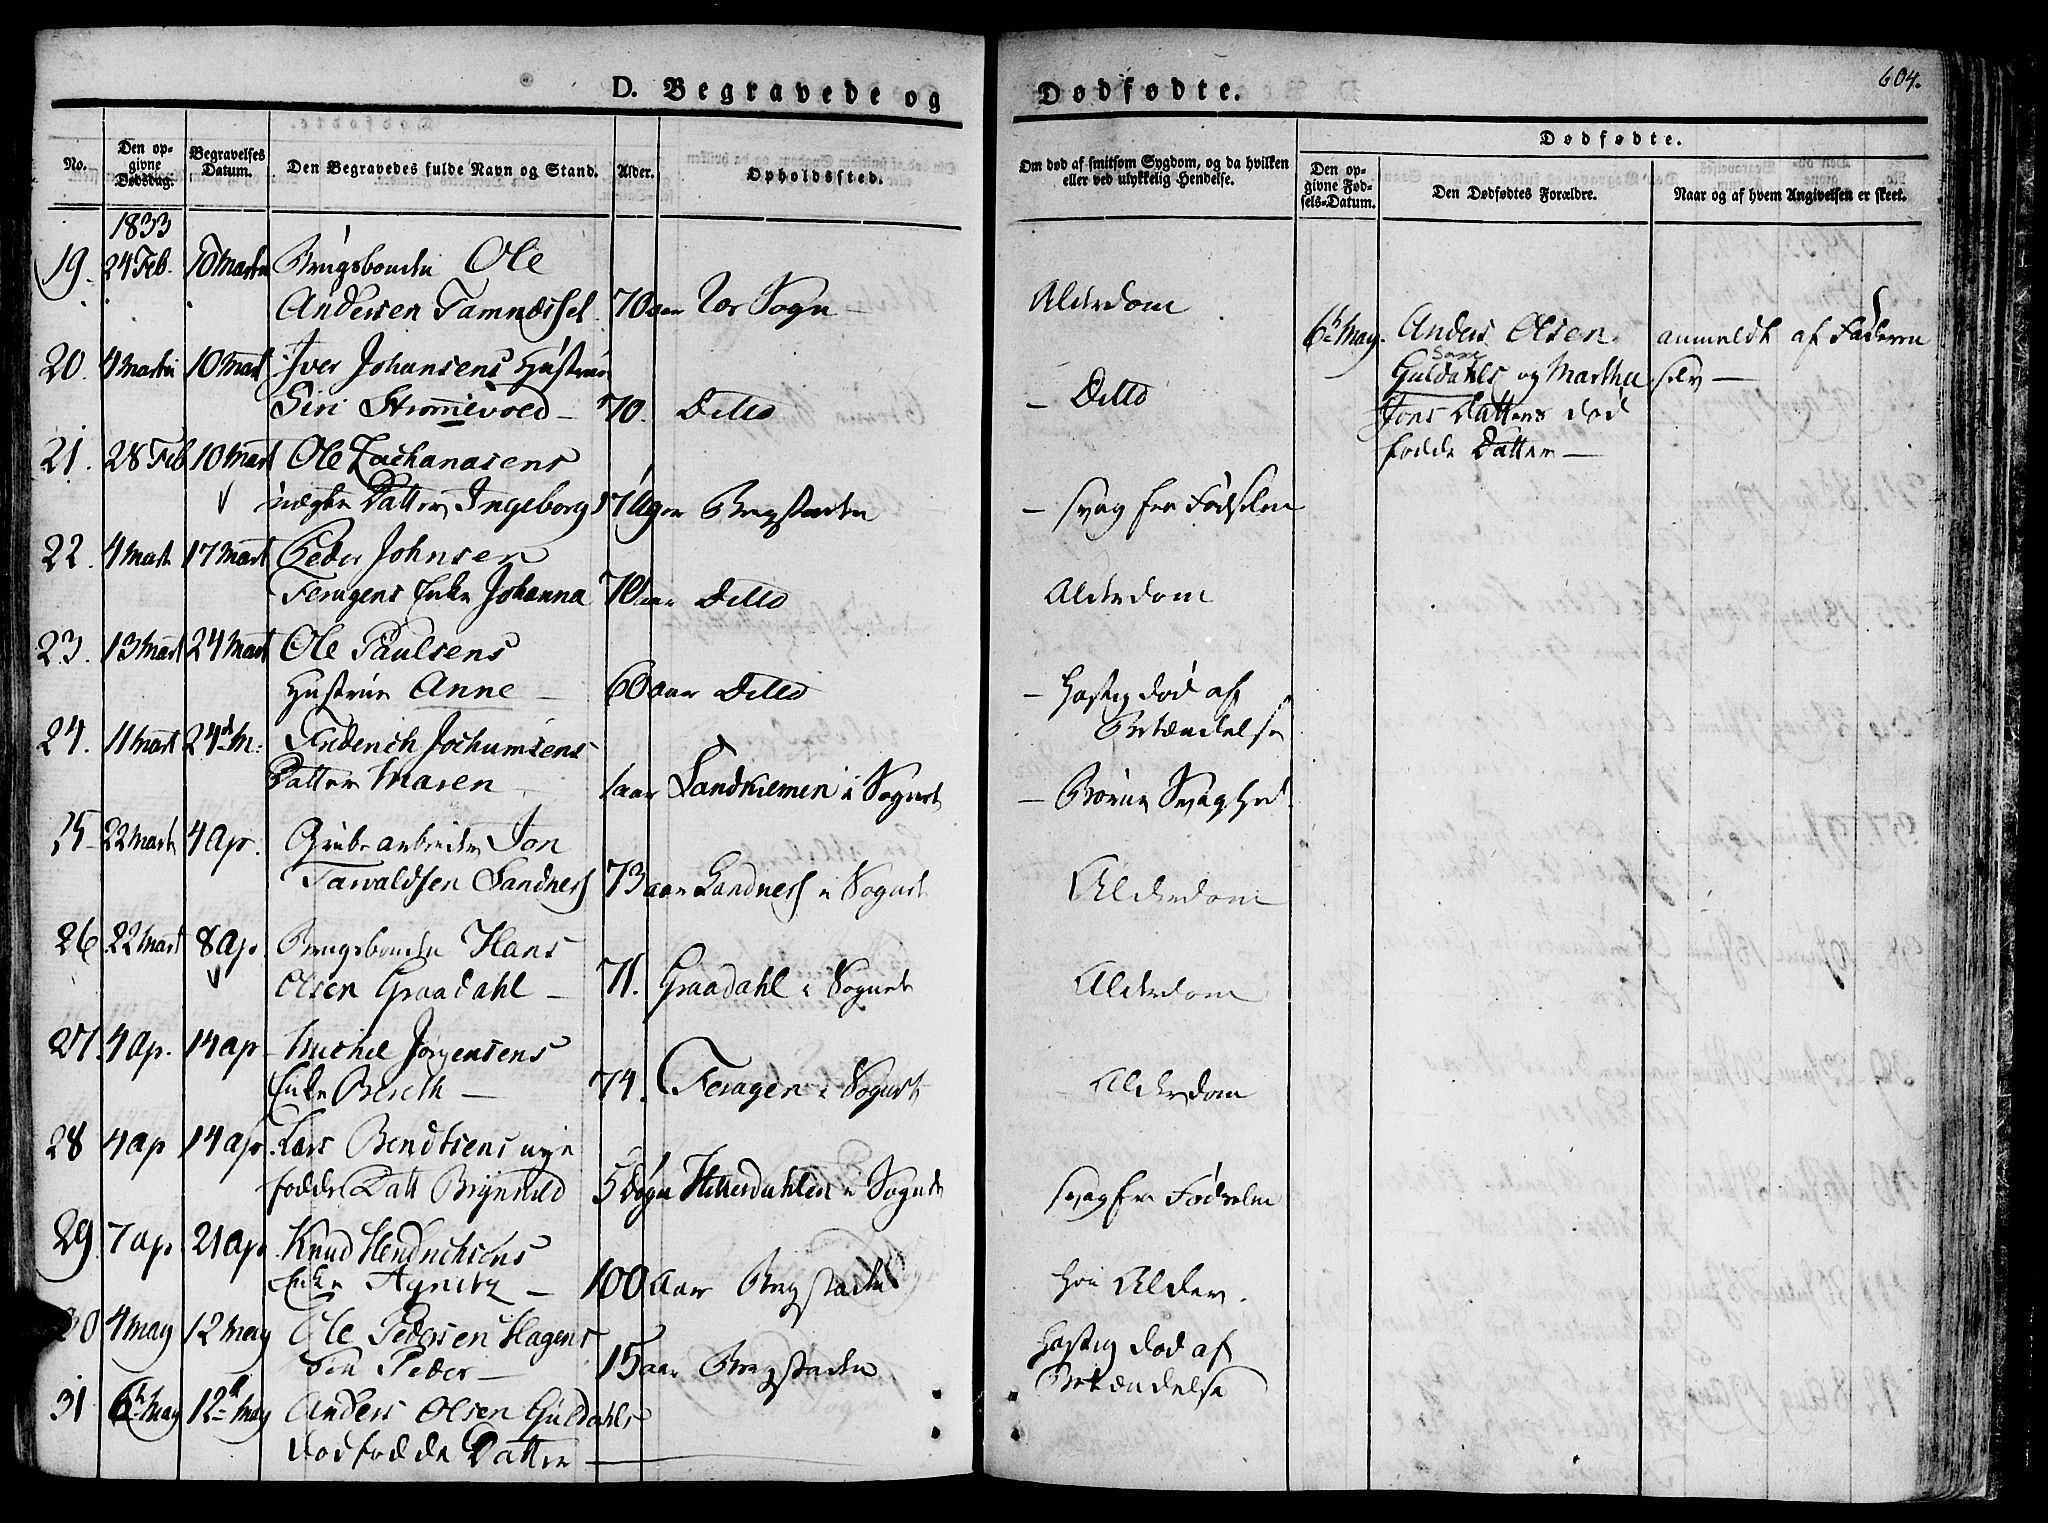 D. Begravede og
Dødfødte.
604.
No.
Den op-
givne
Dødsdag.
Begravelses
Datum.
Den Begravedes fulde Navn og Stand.
Alder.
Opholdssted.
Om død af smitsom Sygdom, og da hvilken
eller ved ulykkelig Hendelse.
Dødfødte.
Den op-
givne Fød-
sels-Datum.
Den Dødfødtes Forældre.
Naar og af hvem Angivelsen er skeet.
1833
19. 24 Feb. 10 Martii Brugsbonden Ole
Andersen Tamnæsset 70 aar Sogn Alderdom
20. 4 Martii 10 Mart Iver Johansens Hustrue
Siri Strømevold 70. Ditto – Ditto
21. 28 Feb 10 Mart Ole Zachariasens
uægte Datter Ingeborg Bergstaden – svag fra Fødselen
22. 4 Mart 17 Mart Peder Johnsen
Feragens Enke Johanna 70 aar Ditto Alderdom
23. 13 Mart 24 Mart Ole Paulsens
Hustrue Anne – 60 aar Ditto – Hastig død af
Betændelse
24. 11 Mart 24d M: Friderich Jochumsens
Datter Maren 1 aar Landkiemen i Sognet – Børne Svaghed
25 22 Mart 4 Ap. Grube arbeider Jon
Tarvaldsen Sandness 73 aar Sandness i Sognet Alderdom
26 22 Mart 8 Ap. Brugsbonden Hans
Olsen Graadahl – 71. Graadahl i Sognet Alderdom
27. 4 Ap. 14 Ap Michel Jørgensens
Enke Bereth – 74. Feragen i Sognet Alderdom
28 4 Ap 14 Ap. Lars Bendtsens nye
fødde Datt Brynild 5 døgn Hitterdahlen i Sognet svag fra Fødselen
29. 7 Ap 21 Ap. Knud Hendrichsens
Enke Agnete – 100 Aar Bergstaden høi Alder.
30 4 May 12 May Ole Pedersen Hagens
Søn Peder – 15 aar Bergstaden Hastig død af
Betændelse
31 6h May 12h May Anders Olsen Guldahls
dødfødde Datter –
6h May. Anders Olsen anmeldt af Faderen
Guldahls og Marthe selv –
Jons Datters død
fødde Datter –